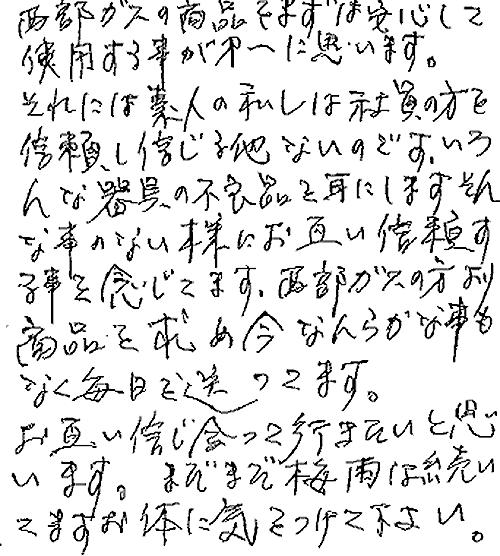 西部ガスの商品をまずは安心して
使用する事が第一に思います。
それには素人の私しは社員の方を
信頼し信じる他ないのです。いろ
んな器具の不良品を耳にしますそん
な事のない様にお互い信頼す
る事を念じてます。西部ガスの方より
商品を求め今なんらかな事も
なく毎日を送ってます。
お互い信じ合って行きたいと思い
います。まだまだ梅雨は続い
てますお体に気をつけて下さい。